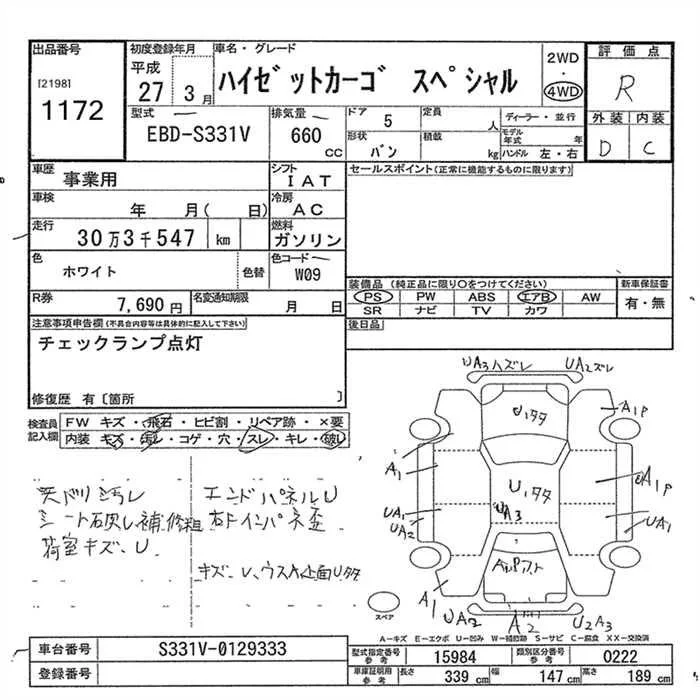 出品番号 初度登録年月 車名・グレード 評価点
[2198] 1172
平成 27 3月
ハイゼットカーゴ スペシャル
2WD・4WD
R
外装 内装
D C
型式 EBD-S331V
排気量 660 CC
ドア 5 定員 人 ディーラー・並行
形状 バン 積載 kg モデル年式 年
ハンドル 左・右
車歴 事業用
シフト IAT
セールスポイント(正常に機能するものに限ります)
車検 年 月( 日)
冷房 AC
走行 30万3千547 km
燃料 ガソリン
色 ホワイト 色替
色コード W09
装備品(純正品に限り○をつけてください) 新車保証書
PS PW ABS エアB AW 有・無
SR ナビ TV カワ
R券 7,690円 名変通知期限 月 日
後日品
注意事項申告欄(不具合内容等は具体的に記入して下さい)
チェックランプ点灯
修復歴 有〔箇所 〕
検査員記入欄
FW キズ・飛石・ヒビ割・リペア跡・×要
内装 キズ・汚レ・コゲ・穴・スレ・キレ・破レ
UA3ハズレ UA2ズレ
A1P
A1
UA1
UA2
UA3
A1P
UA1
A1
UA2
A2
U2A3
天バリ汚レ エンドパネルU
荷室キズ、U
スペア
A-キズ E-エクボ U-凹み W-補修跡 S-サビ C-腐食 XX-交換済
車台番号 S331V-0129333
登録番号
型式指定番号参考 15984 類別区分番号参考 0222
車庫証明用参考 長さ 339 cm 幅 147 cm 高さ 189 cm